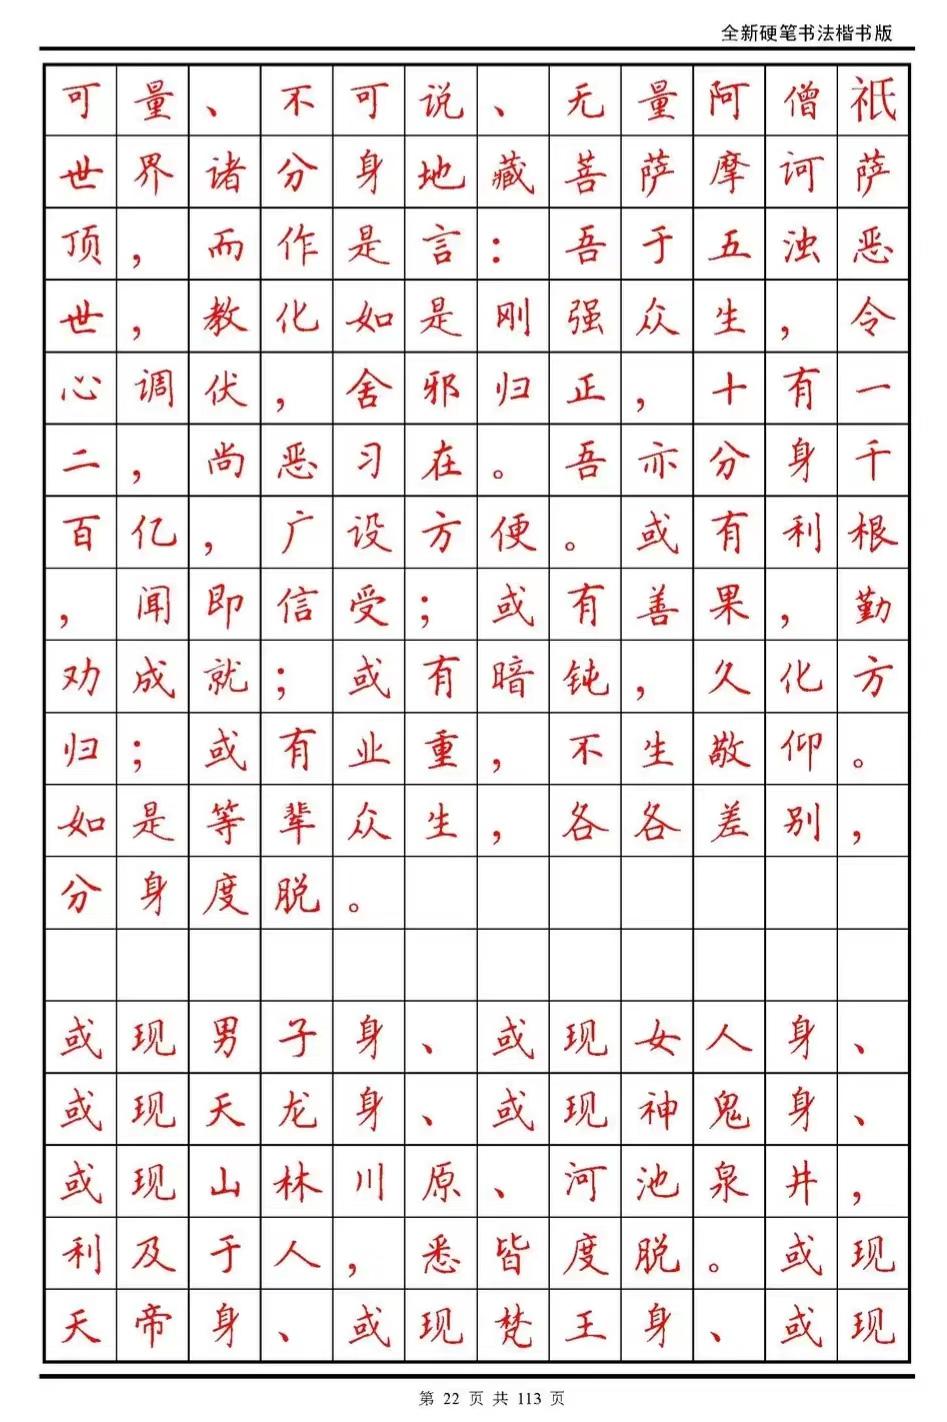 全新硬笔书法楷书版
可量、不可说、无量阿僧祇
世界诸分身地藏菩萨摩诃萨
顶，而作是言：吾于五浊恶
世，教化如是刚强众生，令
心调伏，舍邪归正，十有一
二，尚恶习在。吾亦分身千
百亿，广设方便。或有利根
，闻即信受；或有善果，勤
劝成就；或有暗钝，久化方
归；或有业重，不生敬仰。
如是等辈众生，各各差别，
分身度脱。
或现男子身、或现女人身、
或现天龙身、或现神鬼身、
或现山林川原、河池泉井，
利及于人，悉皆度脱。或现
天帝身、或现梵王身、或现
第 22 页 共 113 页